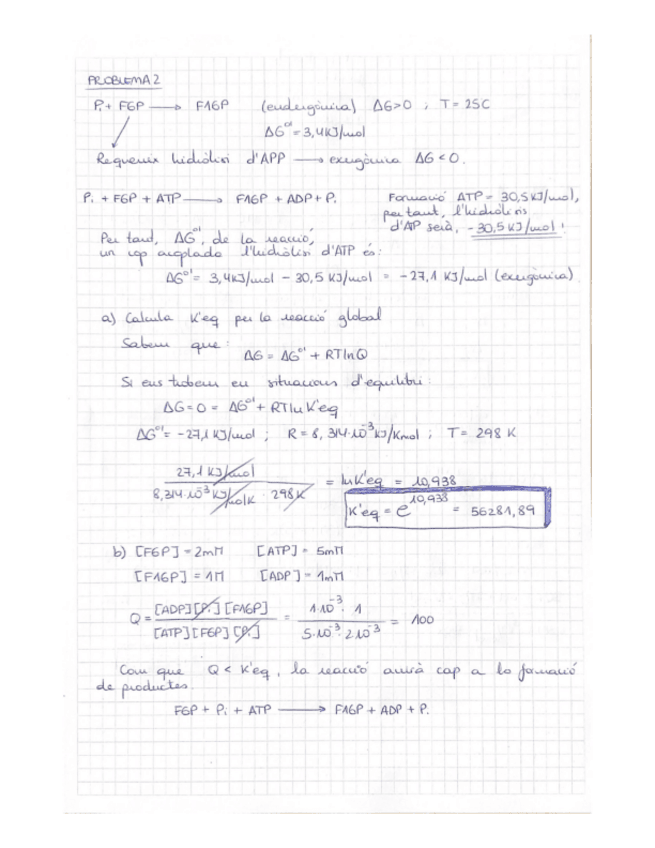 PROBLEMA 2
Pi + F6P ⟶ F16P (endergònica) ΔG>0 ; T = 25C
ΔG°' = 3,4KJ/mol
Requereix hidròlisi d'APP ⟶ exergònica ΔG < 0.
Pi + F6P + ATP ⟶ F16P + ADP + Pi
Formació ATP = 30,5 KJ/mol,
per tant, l'hidròlisis
d'ATP serà, -30,5 KJ/mol!
Per tant, ΔG°', de la reacció,
un cop acoplada l'hidròlisi d'ATP és:
ΔG°' = 3,4KJ/mol - 30,5 KJ/mol = -27,1 KJ/mol (exergònica)
a) Calcula K'eq per la reacció global
Sabem que:
ΔG = ΔG°' + RTlnQ
Si ens trobem en situacions d'equilibri:
ΔG = 0 = ΔG°' + RTlnK'eq
ΔG°' = -27,1 KJ/mol ; R = 8,314·10⁻³ KJ/Kmol ; T = 298 K
27,1 KJ/mol
8,314·10⁻³ KJ/molK · 298K
= lnK'eq = 10,938
K'eq = e^10,938 = 56281,89
b) [F6P] = 2mM [ATP] = 5mM
[F16P] = 1M [ADP] = 1mM
Q = [ADP][Pi][F16P] / [ATP][F6P][Pi] = 1·10⁻³ · 1 / 5·10⁻³ · 2·10⁻³ = 100
Com que Q < K'eq, la reacció anirà cap a la formació
de productes.
F6P + Pi + ATP ⟶ F16P + ADP + Pi